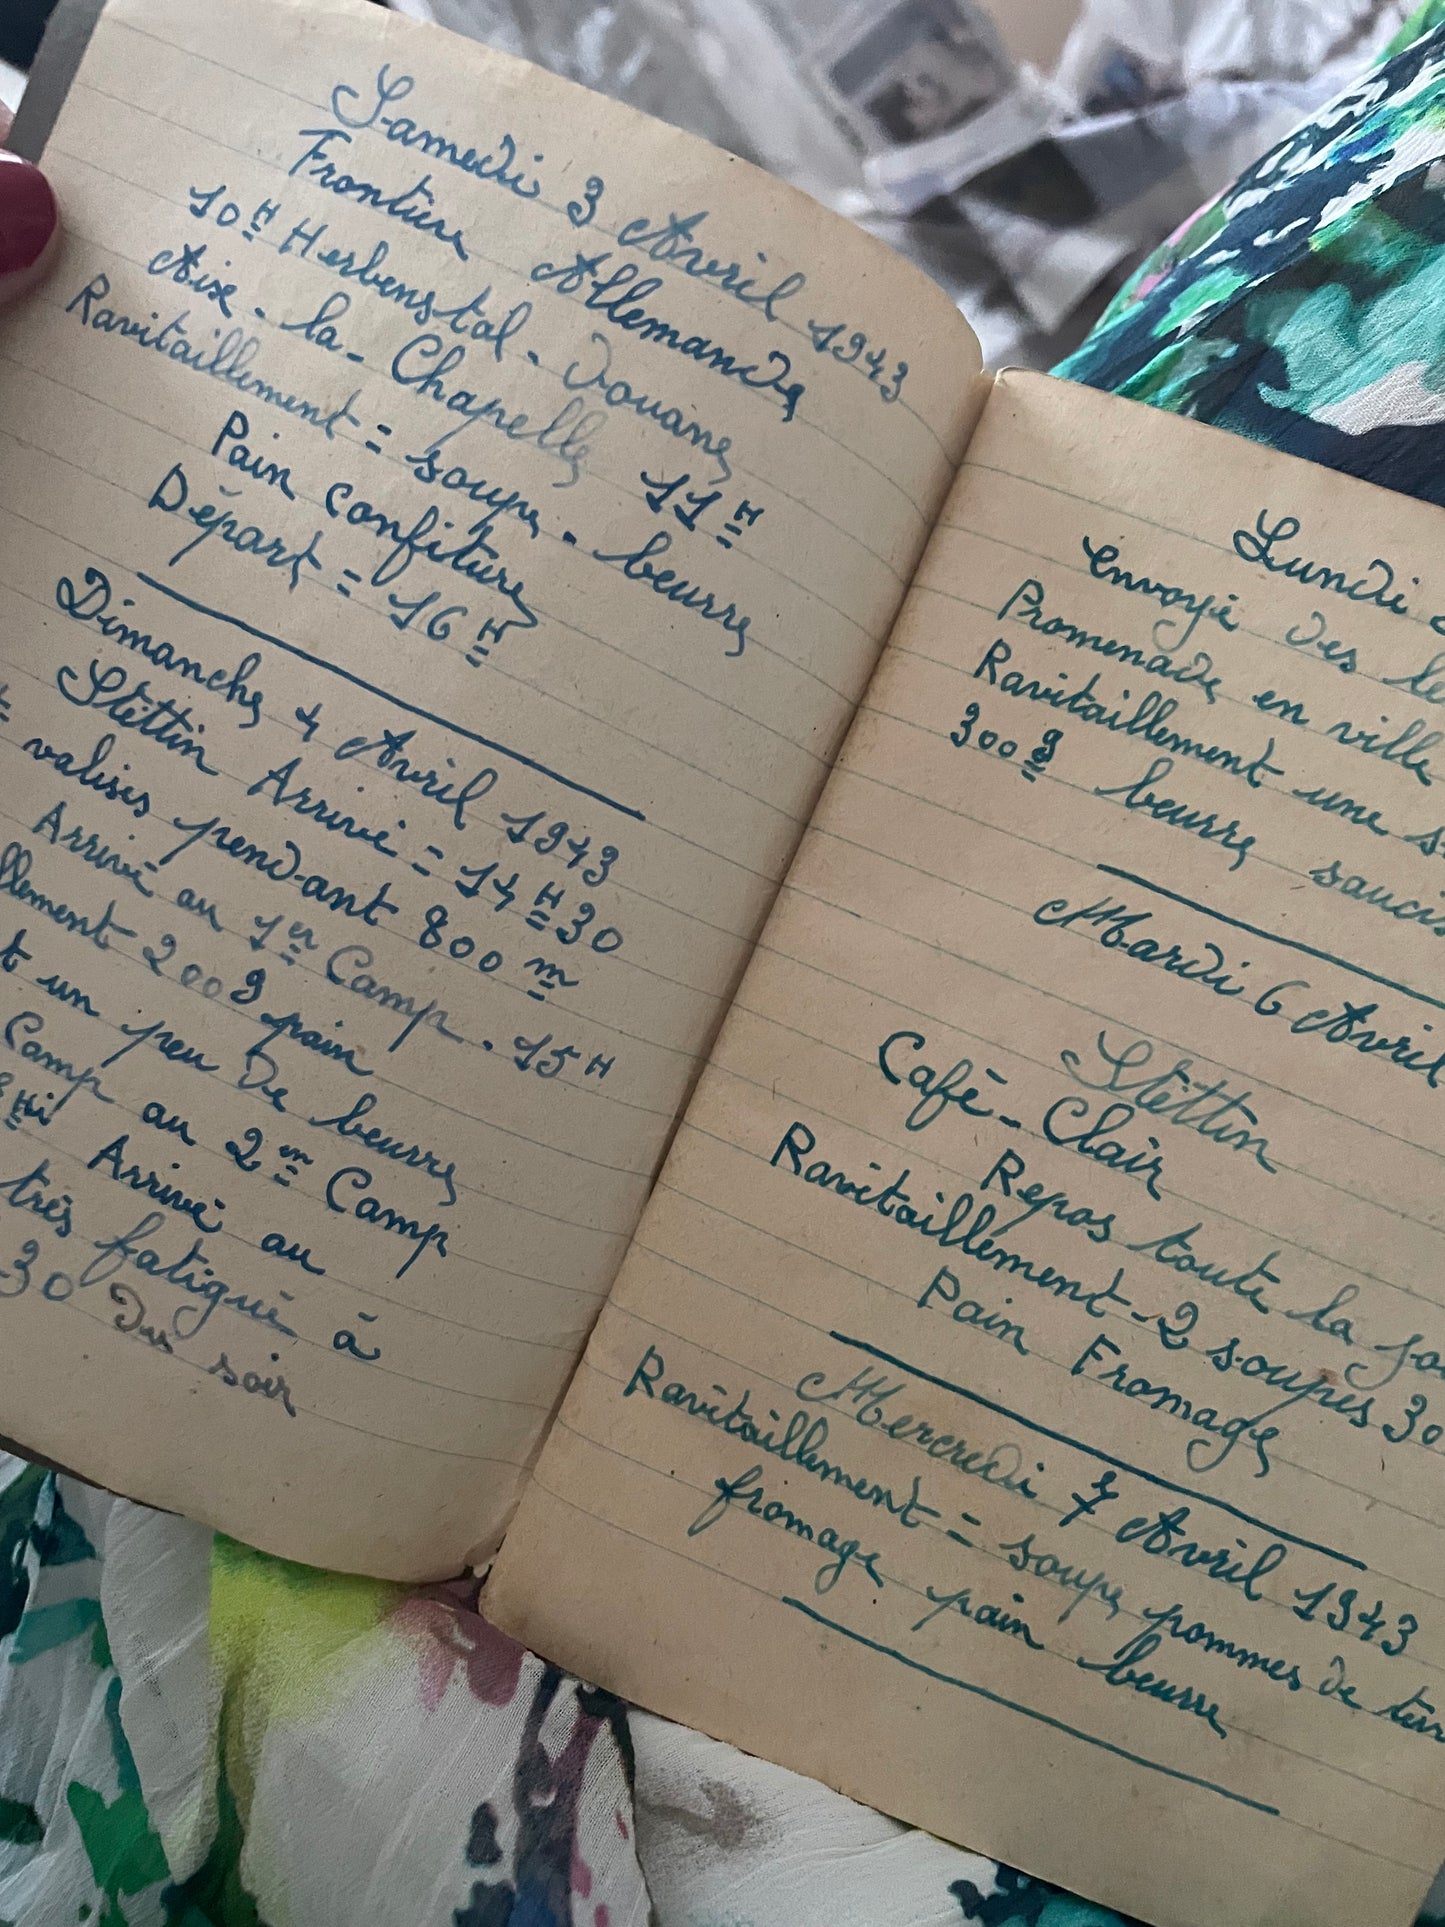 Samedi 3 Avril 1943
Frontière Allemande
10H Herbenstal - Douane
Aix-la-Chapelle 11H
Ravitaillement = soupe - beurre
Pain confiture
Départ = 16H
Dimanche 4 Avril 1943
Stèttin Arrivé = 14H30
valises pendant 800m
Arrivé au 1er Camp - 15H
llement 200g pain
t un peu de beurre
Camp au 2m Camp
Arrivé au
très fatigué à
30 du soir
Lundi
envoyé des le
Promenade en ville
Ravitaillement une s
300g beurre saucis
Mardi 6 Avril
Stèttin
Café-Clair
Repos toute la jo
Ravitaillement-2 soupes 30
Pain Fromage
Mercredi 7 Avril 1943
Ravitaillement = soupe pommes de terr
fromage pain beurre